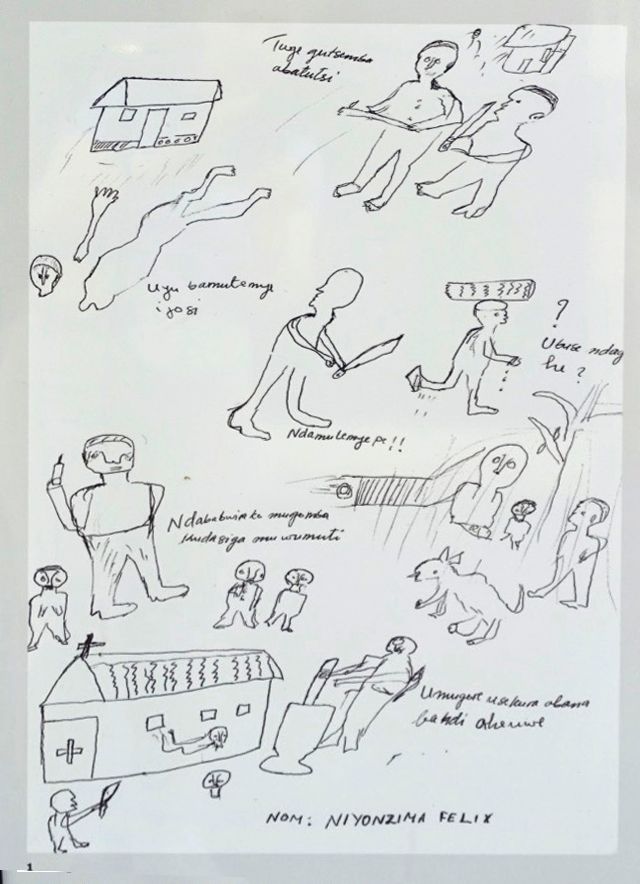 Tuge gutsemba
abatutsi
Uyu bamutemye
ijosi
?
Ubuse ndaq
he ?
Ndamutemye pe!!
Ndababwira ko mugomba
kudasiga mu wumuti
Umugore usekura abana
babdi aheuwe
NOM: NIYONZIMA FELIX
1